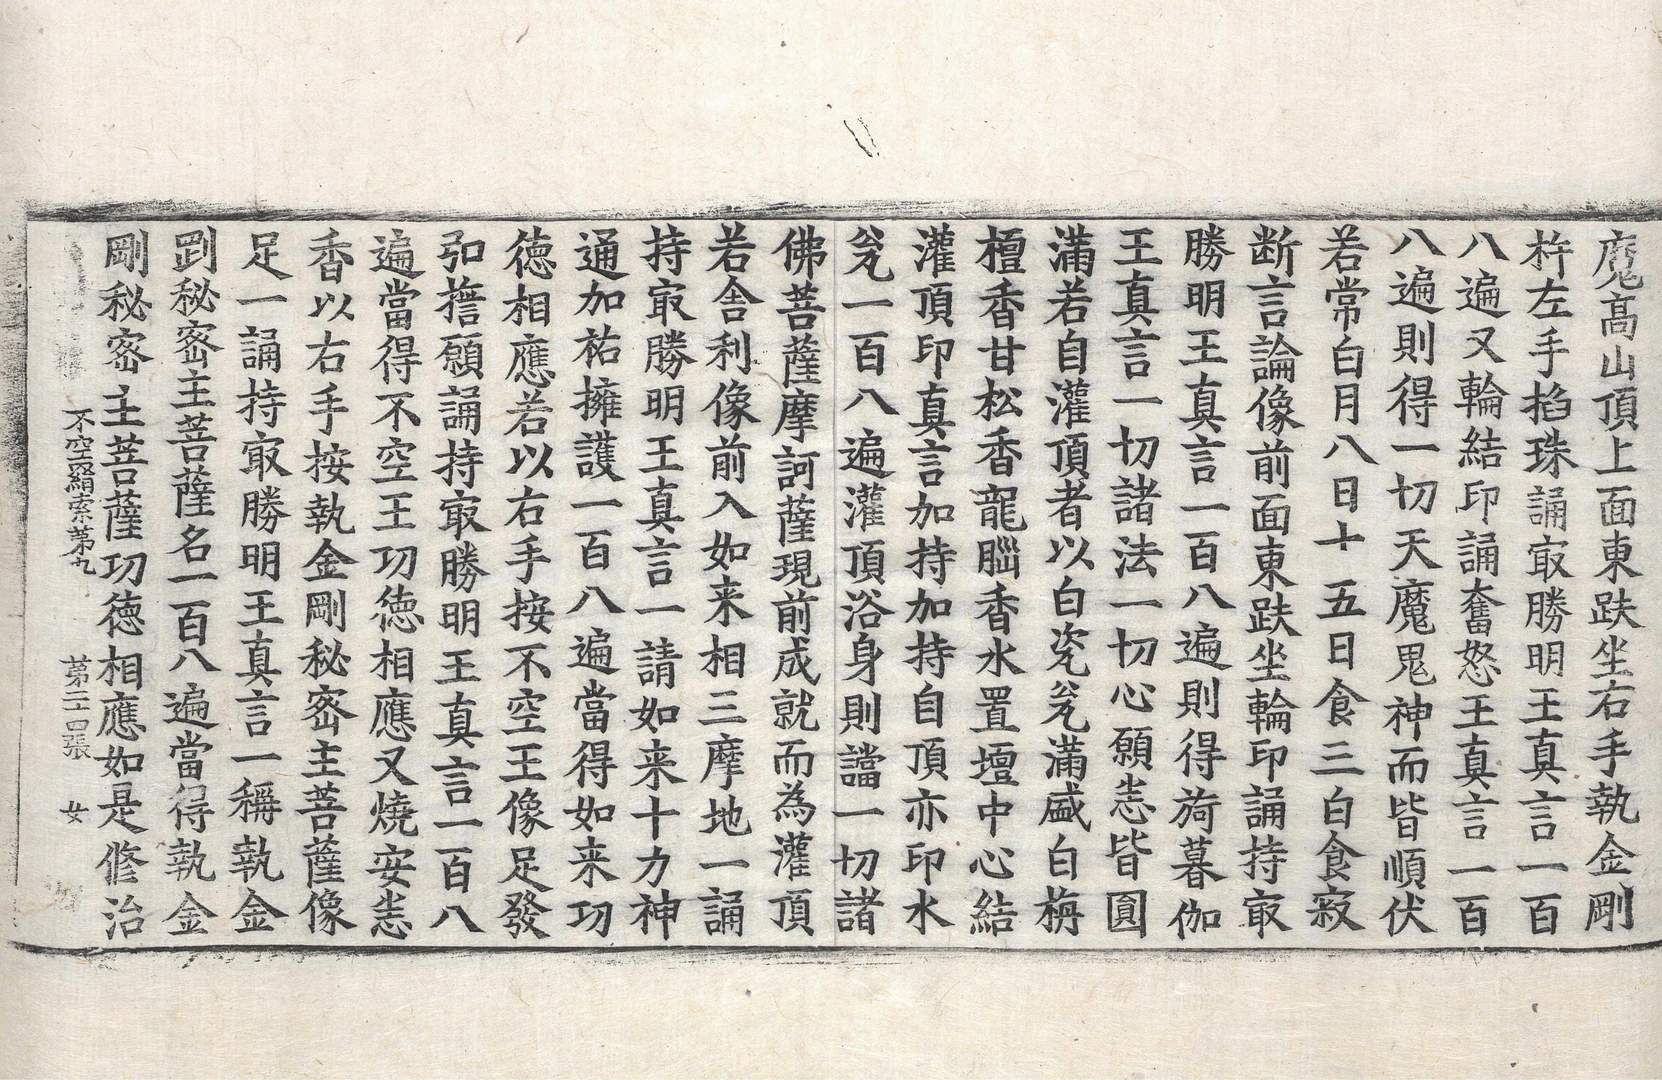 魔髙山頂上面東趺坐右手執金剛
杵左手掐珠誦㝡勝明王真言一百
八遍又輪結印誦奮怒王真言一百
八遍則得一切天魔鬼神而皆順伏
若常白月八日十五日食三白食寂
断言論像前面東趺坐輪印誦持㝡
勝明王真言一百八遍則得旖暮伽
王真言一切諸法一切心願悉皆圎
滿若自灌頂者以白瓷瓮滿盛白栴
檀香甘松香龍腦香水置壇中心結
灌頂印真言加持加持自頂亦印水
瓮一百八遍灌頂浴身則讜一切諸
佛菩薩摩訶薩現前成就而為灌頂
若舍利像前入如来相三摩地一誦
持㝡勝明王真言一請如来十力神
通加祐擁護一百八遍當得如来功
德相應若以右手按不空王像足發
弘誓願誦持㝡勝明王真言一百八
遍當得不空王功德相應又燒安悉
香以右手按執金剛秘密主菩薩像
足一誦持㝡勝明王真言一稱執金
剛秘密主菩薩名一百八遍當得執金
剛秘密主菩薩功德相應如是修治
不空羂索苐九　苐二十四張　女